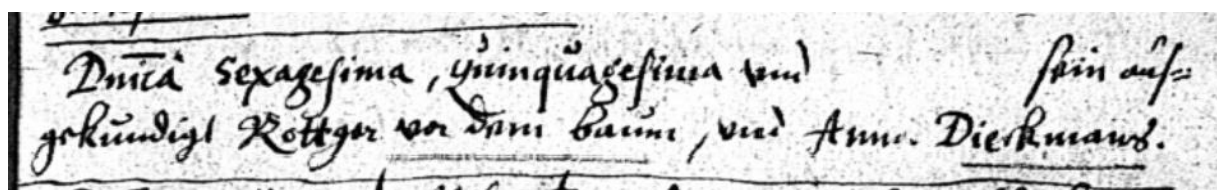 Dnicâ Sexagesima, Quinquagesima und sein auf=
gekundigt Rottger vor dem baum, und Anne. Dieckmans.